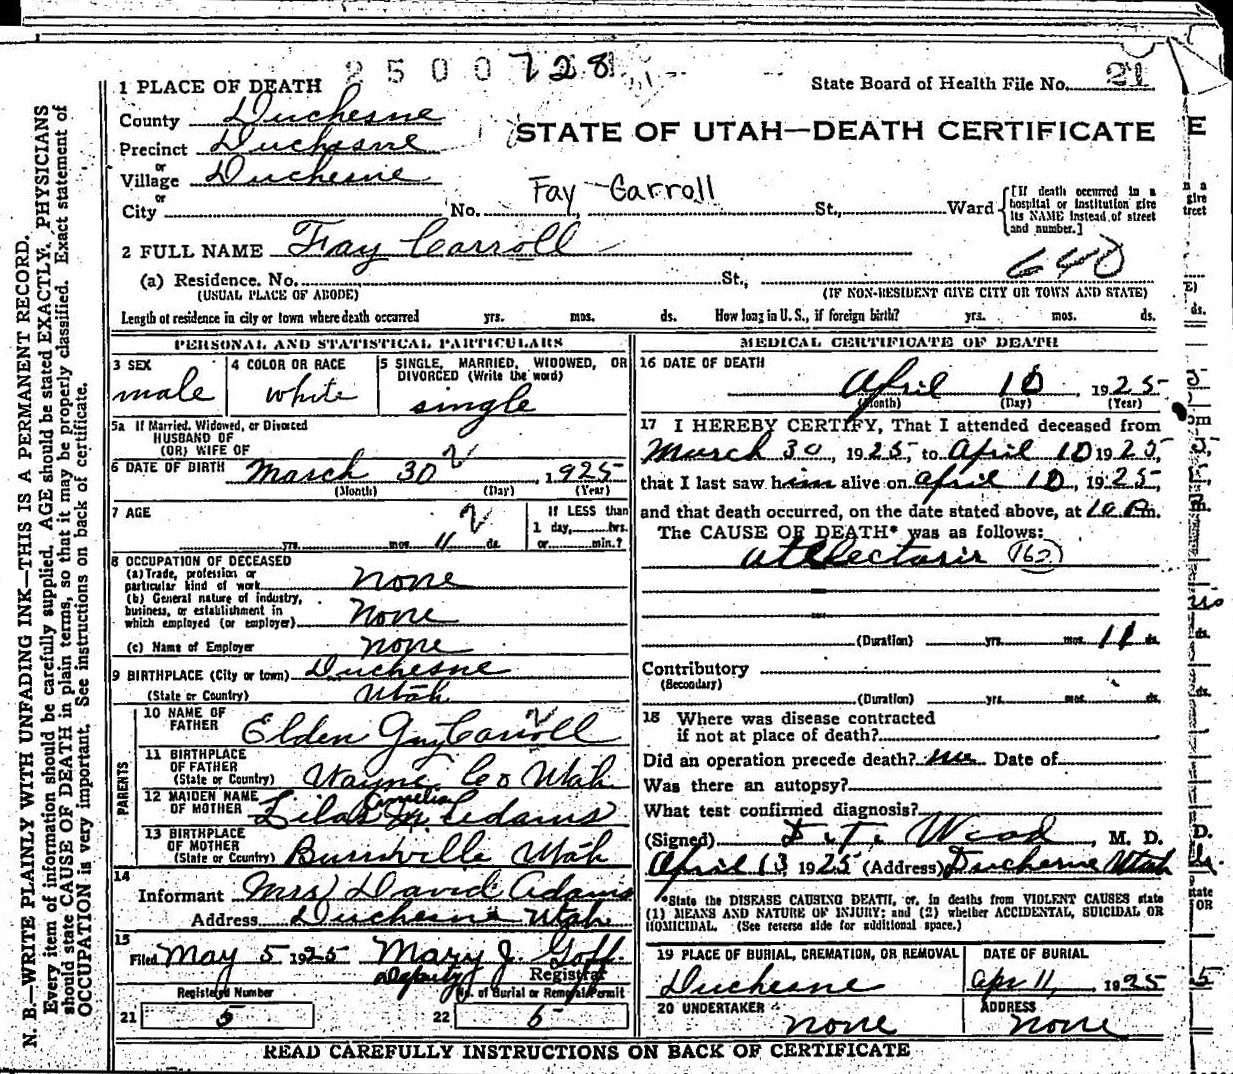 2500728
1 PLACE OF DEATH
State Board of Health File No. 21
County Duchesne
STATE OF UTAH—DEATH CERTIFICATE
Precinct Duchesne
or
Village Duchesne
or
Fay Carroll
City No. St., Ward
[If death occurred in a hospital or institution give its NAME instead of street and number.]
2 FULL NAME Fay Carroll
640
(a) Residence. No. St.,
(USUAL PLACE OF ABODE) (IF NON-RESIDENT GIVE CITY OR TOWN AND STATE)
Length of residence in city or town where death occurred yrs. mos. ds. How long in U. S., if foreign birth? yrs. mos. ds.
PERSONAL AND STATISTICAL PARTICULARS
3 SEX male
4 COLOR OR RACE white
5 SINGLE, MARRIED, WIDOWED, OR DIVORCED (Write the word)
single
5a If Married, Widowed, or Divorced
HUSBAND OF
(OR) WIFE OF
6 DATE OF BIRTH March 30, 1925
(Month) (Day) (Year)
7 AGE
yrs. mos. 11 ds.
If LESS than
1 day, hrs.
or min.?
8 OCCUPATION OF DECEASED
(a) Trade, profession or
particular kind of work none
(b) General nature of industry,
business, or establishment in
which employed (or employer) None
(c) Name of Employer none
9 BIRTHPLACE (City or town) Duchesne
(State or Country) Utah
PARENTS
10 NAME OF
FATHER Elden Guy Carroll
11 BIRTHPLACE
OF FATHER
(State or Country) Wayne Co Utah
12 MAIDEN NAME
OF MOTHER Lilas Cornelia Adams
13 BIRTHPLACE
OF MOTHER
(State or Country) Burrville Utah
14
Informant Mrs David Adams
Address Duchesne Utah
15
Filed May 5 1925 Mary J. Goff
Deputy Registrar
Registered Number No. of Burial or Removal Permit
21 5 22 5
MEDICAL CERTIFICATE OF DEATH
16 DATE OF DEATH
April 10, 1925
(Month) (Day) (Year)
17 I HEREBY CERTIFY, That I attended deceased from
March 30, 1925, to April 10 1925,
that I last saw him alive on April 10, 1925,
and that death occurred, on the date stated above, at 10 P m.
The CAUSE OF DEATH* was as follows:
Atelectasis 162
(Duration) yrs. mos. 11 ds.
Contributory
(Secondary)
(Duration) yrs. mos. ds.
18 Where was disease contracted
if not at place of death?
Did an operation precede death? no Date of
Was there an autopsy?
What test confirmed diagnosis?
(Signed) Wood, M. D.
April 13 1925 (Address) Duchesne Utah
*State the DISEASE CAUSING DEATH, or, in deaths from VIOLENT CAUSES state
(1) MEANS AND NATURE OF INJURY; and (2) whether ACCIDENTAL, SUICIDAL OR
HOMICIDAL. (See reverse side for additional space.)
19 PLACE OF BURIAL, CREMATION, OR REMOVAL
Duchesne
DATE OF BURIAL
Apr 11, 1925
20 UNDERTAKER
none
ADDRESS
none
READ CAREFULLY INSTRUCTIONS ON BACK OF CERTIFICATE
N. B.—WRITE PLAINLY WITH UNFADING INK—THIS IS A PERMANENT RECORD.
Every item of information should be carefully supplied. AGE should be stated EXACTLY. PHYSICIANS
should state CAUSE OF DEATH in plain terms, so that it may be properly classified. Exact statement of
OCCUPATION is very important. See instructions on back of certificate.